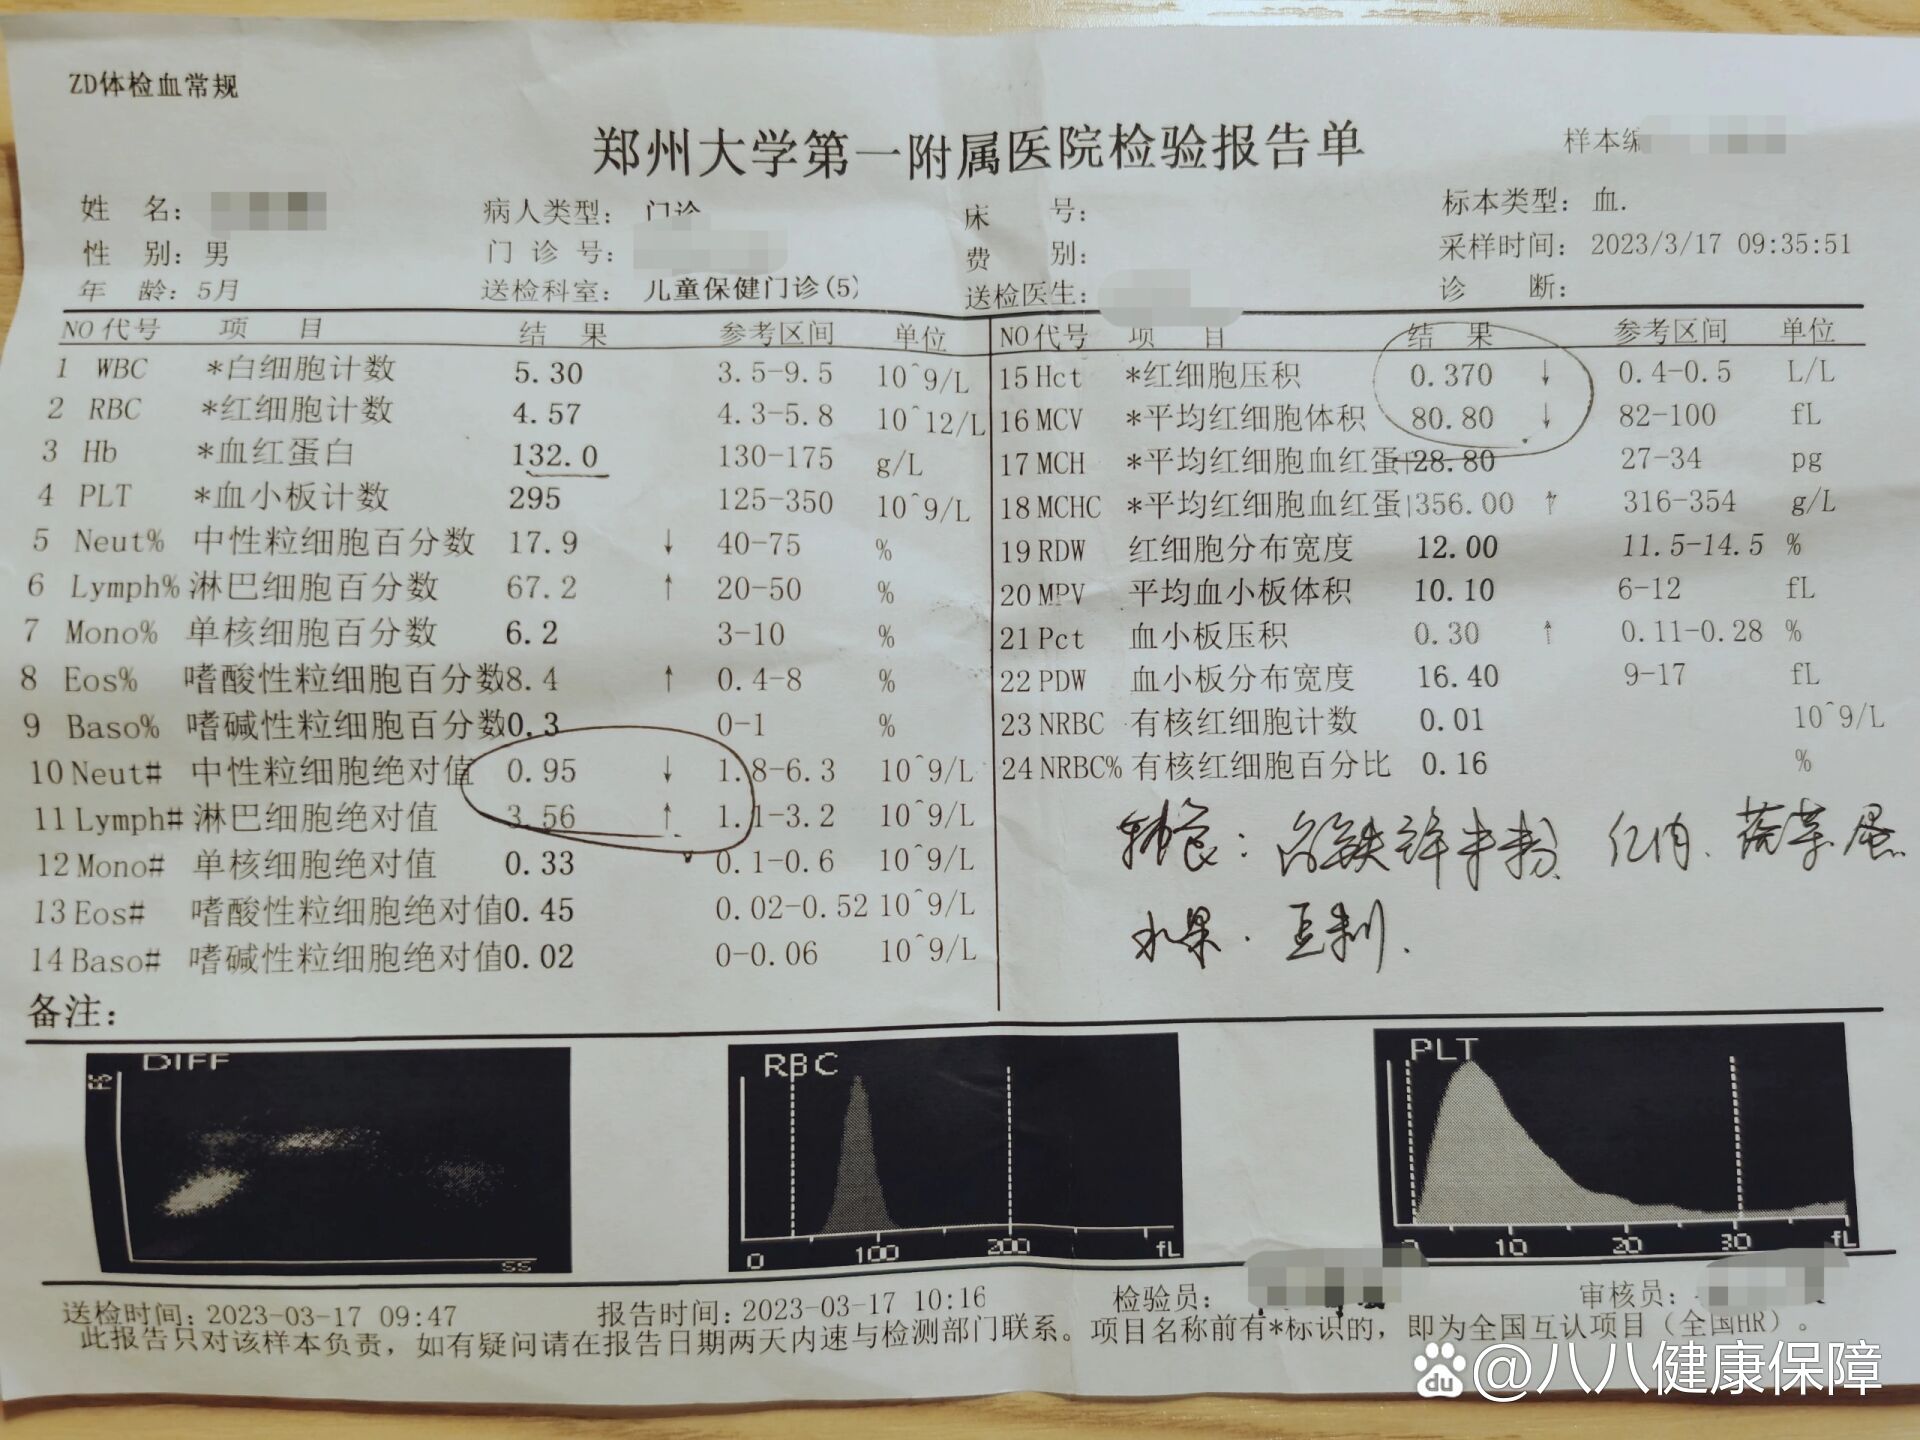 ZD体检血常规
郑州大学第一附属医院检验报告单
样本编
姓 名:
病人类型: 门诊
床 号:
标本类型: 血.
性 别: 男
门 诊 号:
费 别:
采样时间: 2023/3/17 09:35:51
年 龄: 5月
送检科室: 儿童保健门诊(5)
送检医生:
诊 断:
NO 代号 项 目 结 果 参考区间 单位
1 WBC *白细胞计数 5.30 3.5-9.5 10^9/L
2 RBC *红细胞计数 4.57 4.3-5.8 10^12/L
3 Hb *血红蛋白 132.0 130-175 g/L
4 PLT *血小板计数 295 125-350 10^9/L
5 Neut% 中性粒细胞百分数 17.9 ↓ 40-75 %
6 Lymph% 淋巴细胞百分数 67.2 ↑ 20-50 %
7 Mono% 单核细胞百分数 6.2 3-10 %
8 Eos% 嗜酸性粒细胞百分数8.4 ↑ 0.4-8 %
9 Baso% 嗜碱性粒细胞百分数0.3 0-1 %
10 Neut# 中性粒细胞绝对值 0.95 ↓ 1.8-6.3 10^9/L
11 Lymph# 淋巴细胞绝对值 3.56 ↑ 1.1-3.2 10^9/L
12 Mono# 单核细胞绝对值 0.33 0.1-0.6 10^9/L
13 Eos# 嗜酸性粒细胞绝对值0.45 0.02-0.52 10^9/L
14 Baso# 嗜碱性粒细胞绝对值0.02 0-0.06 10^9/L
NO 代号 项 目 结 果 参考区间 单位
15 Hct *红细胞压积 0.370 ↓ 0.4-0.5 L/L
16 MCV *平均红细胞体积 80.80 ↓ 82-100 fL
17 MCH *平均红细胞血红蛋 28.80 27-34 pg
18 MCHC *平均红细胞血红蛋 356.00 ↑ 316-354 g/L
19 RDW 红细胞分布宽度 12.00 11.5-14.5 %
20 MPV 平均血小板体积 10.10 6-12 fL
21 Pct 血小板压积 0.30 ↑ 0.11-0.28 %
22 PDW 血小板分布宽度 16.40 9-17 fL
23 NRBC 有核红细胞计数 0.01 10^9/L
24 NRBC% 有核红细胞百分比 0.16 %
辅食: 含铁锌米粉 红肉、蔬菜 蛋
水果. 豆制.
备注:
DIFF
SS
RBC
0 100 200 fL
PLT
0 10 20 30 fL
送检时间: 2023-03-17 09:47
报告时间: 2023-03-17 10:16
检验员:
审核员:
此报告只对该样本负责, 如有疑问请在报告日期两天内速与检测部门联系。项目名称前有*标识的, 即为全国互认项目(全国HR)。
du @八八健康保障